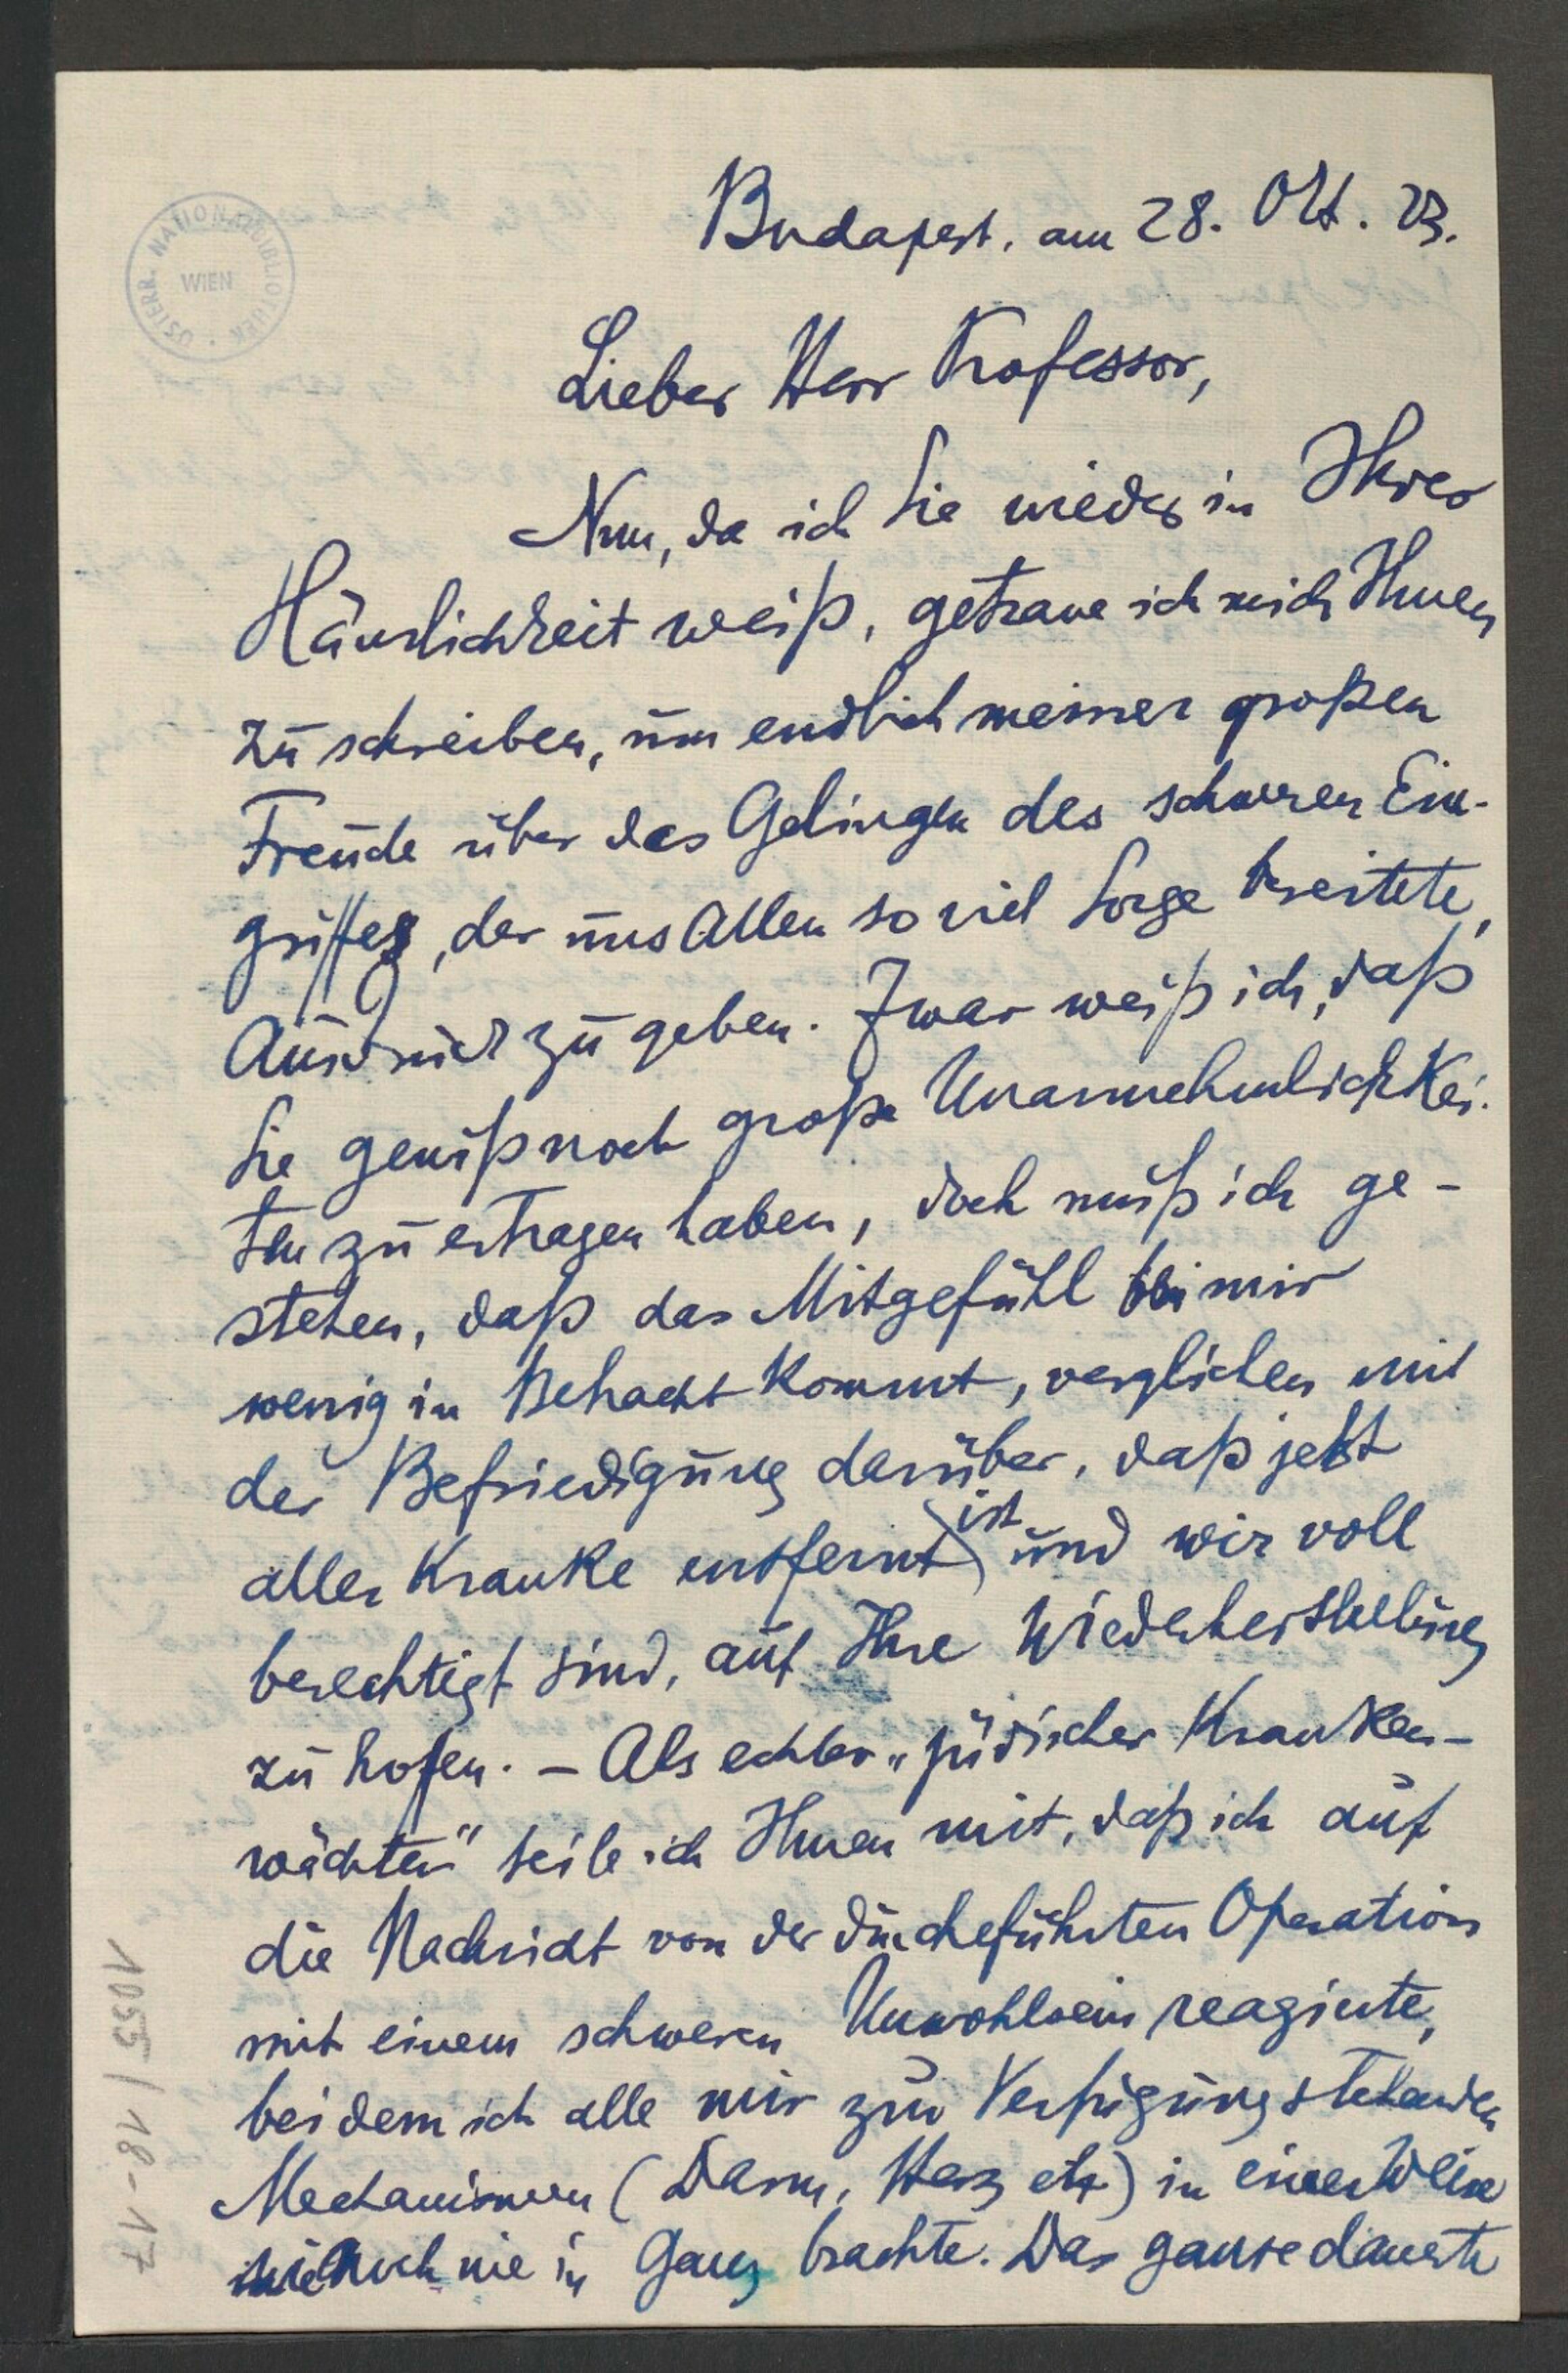 ÖSTERR. NATIONALBIBLIOTHEK
WIEN
Budapest, am 28. Okt. 23.
Lieber Herr Professor,
Nun, da ich Sie wieder in Ihrer
Häuslichkeit weiß, getraue ich mich Ihnen
zu schreiben, um endlich meiner großen
Freude über das Gelingen des schweren Ein-
griffes, der uns Allen so viel Sorge bereitete,
Ausdruck zu geben. Zwar weiß ich, daß
Sie gewiß noch große Unannehmlichkei-
ten zu ertragen haben, doch muß ich ge-
stehen, daß das Mitgefühl bei mir
wenig in Betracht kommt, verglichen mit
der Befriedigung darüber, daß jetzt
alles Kranke entfernt ist und wir voll
berechtigt sind, auf Ihre Wiederherstellung
zu hoffen. – Als echter „jüdischer Kranken-
wächter" teile ich Ihnen mit, daß ich auf
die Nachricht von der durchgeführten Operation
mit einem schweren Unwohlsein reagierte,
bei dem ich alle mir zur Verfügung stehenden
Mechanismen (Darm, Herz etz) in einer Weise
wie noch nie in Gang brachte. Das ganze dauerte
1055/18-17